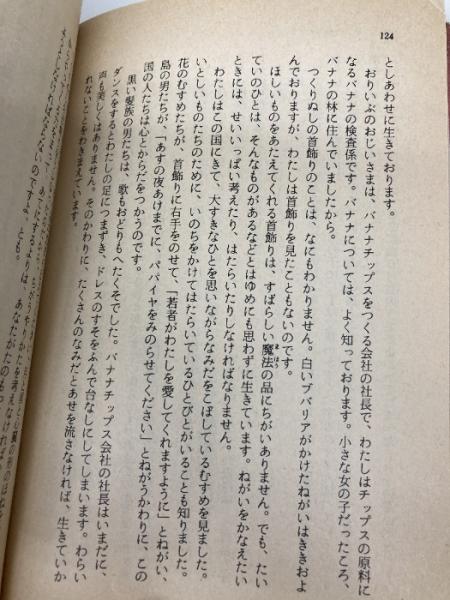 124
としあわせに生きております。
おりいぶのおじいさまは、バナナチップスをつくる会社の社長で、わたしはチップスの原料に
なるバナナの検査係です。バナナについては、よく知っております。小さな女の子だったころ、
バナナの林に住んでいましたから。
つくりぬしの首飾りのことは、なにもわかりません。白いブバリアがかけたねがいはききおよ
んでおりますが、わたしは首飾りを見たこともないのです。
ほしいものをあたえてくれる首飾りは、すばらしい魔法の品にちがいありません。でも、たい
ていのひとは、そんなものがあるなどとはゆめにも思わずに生きています。ねがいをかなえたい
ときには、せいいっぱい考えたり、はたらいたりしなければなりません。
わたしはこの国にきて、大すきなひとを思いながらなみだをこぼしているむすめを見ました。
いとしいものたちのために、いのちをかけてはたらいているひとびとがいることも知りました。
花のむすめたちが、首飾りに右手をのせて、「若者がわたしを愛してくれますように」とねがい、
島の男たちが、「あすの夜あけまでに、パパイヤをみのらせてください」とねがうかわりに、この
国の人たちは心とからだをつかうのです。
黒い髪族の男たちは、歌もおどりもへたくそでした。バナナチップス会社の社長はいまだに、
ダンスをするとわたしの足につまずき、ドレスのすそをふんで台なしにしてしまいます。わらい
声も美しくはありません。そのかわりに、たくさんのなみだとあせを流さなければ、生きていか
れないことをわきまえています。